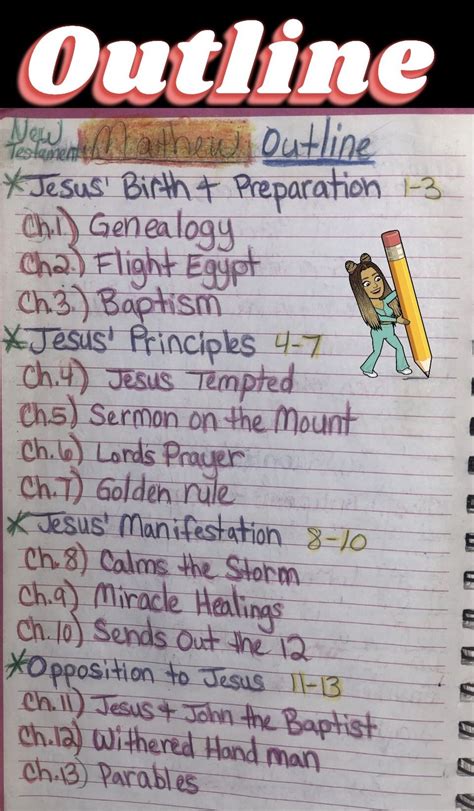 Outline
New Testament Mathew Outline
*Jesus' Birth + Preparation 1-3
Ch.1) Genealogy
Ch.2.) Flight Egypt
Ch.3.) Baptism
*Jesus' Principles 4-7
Ch.4) Jesus Tempted
Ch.5) Sermon on the Mount
Ch.6) Lords Prayer
Ch.7) Golden rule
*Jesus' Manifestation 8-10
Ch.8) Calms the Storm
Ch.9) Miracle Healings
Ch.10) Sends Out the 12
*Opposition to Jesus 11-13
Ch.11) Jesus + John the Baptist
Ch.12) Withered Hand man
Ch.13) Parables